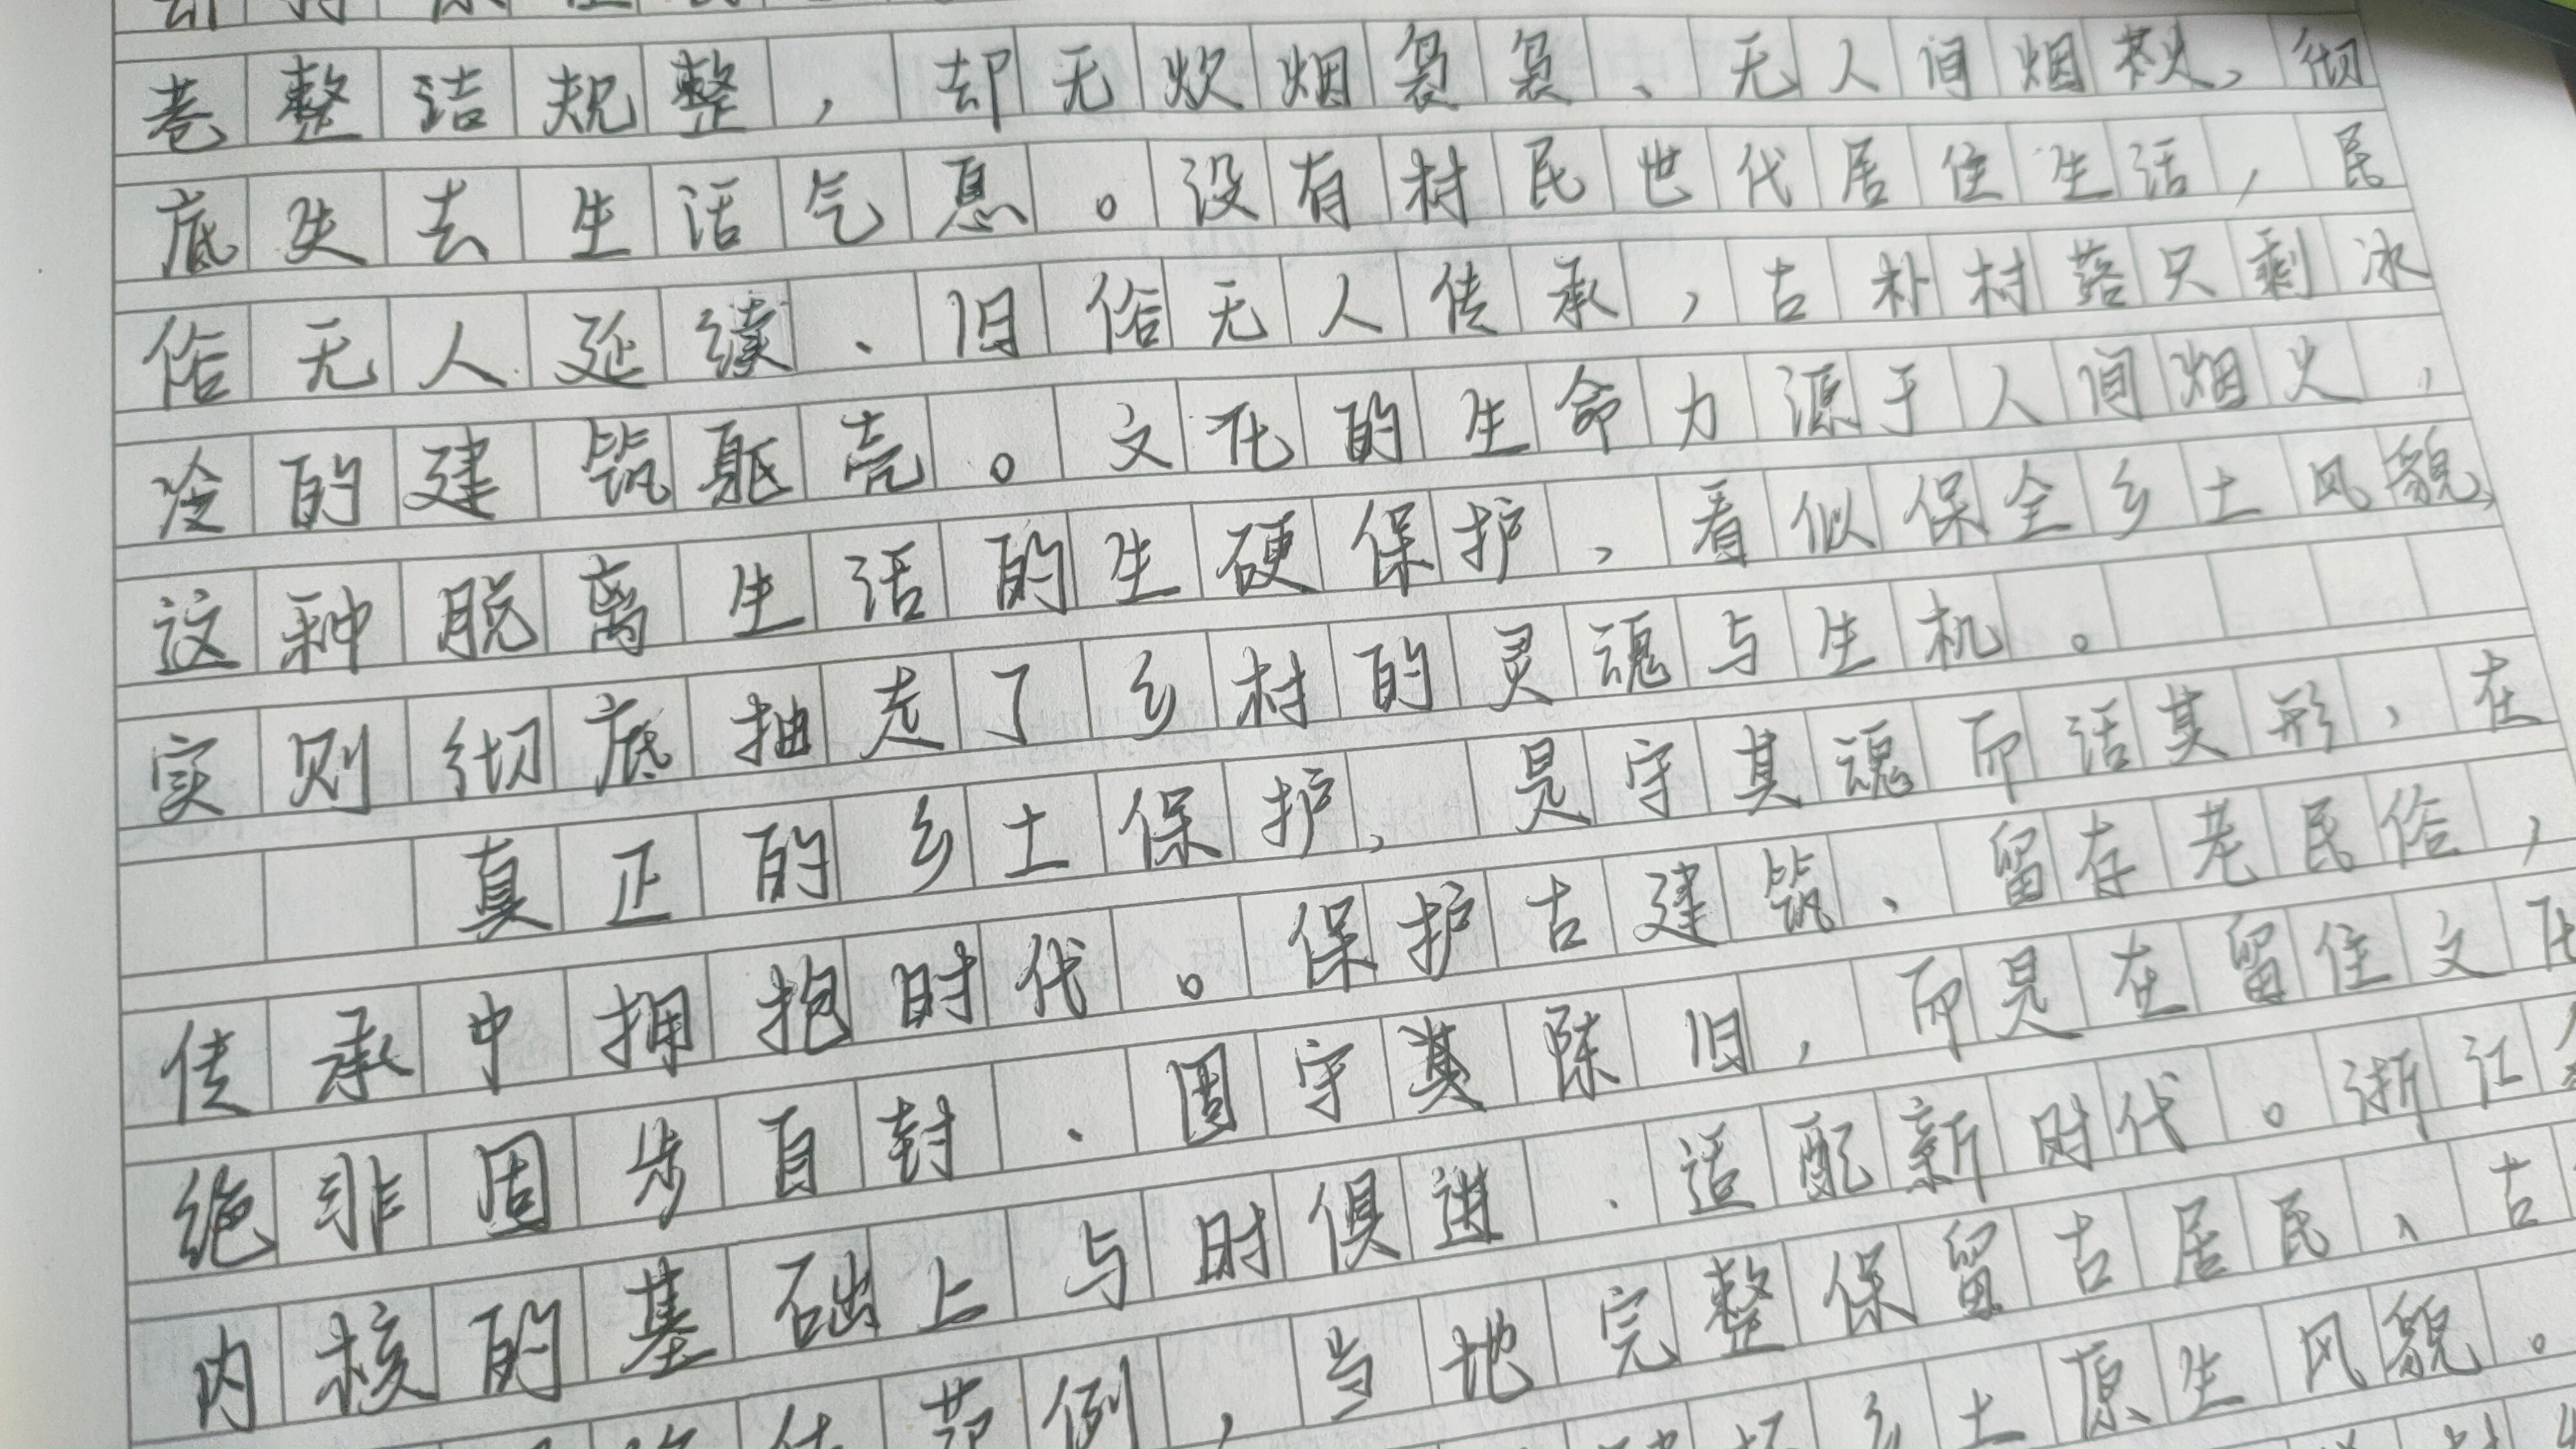 巷整洁规整，却无炊烟袅袅、无人间烟火，彻
底失去生活气息。没有村民世代居住生活，民
俗无人延续、旧俗无人传承，古朴村落只剩冰
冷的建筑躯壳。文化的生命力源于人间烟火，
这种脱离生活的生硬保护，看似保全乡土风貌，
实则彻底抽走了乡村的灵魂与生机。
真正的乡土保护，是守其魂而活其形，在
传承中拥抱时代。保护古建筑、留存老民俗，
绝非固步自封、固守陈旧，而是在留住文化
内核的基础上与时俱进、适配新时代。浙江
范例，当地完整保留古居民、古
乡土原生风貌。